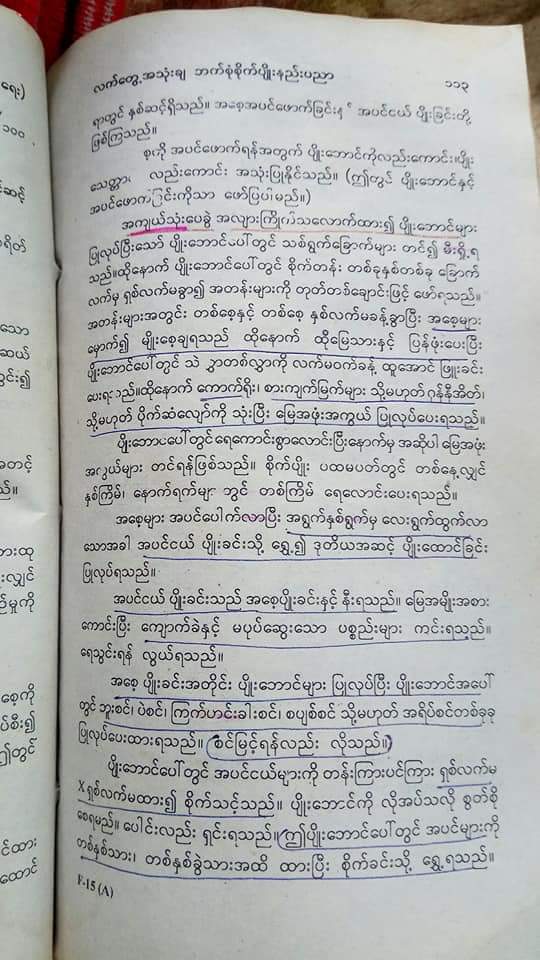 လက်တွေ့အသုံးချ ဘက်စုံစိုက်ပျိုးနည်းပညာ ၁၁၃
ရာတွင် နှစ်ဆင့်ရှိသည်။ အစေ့အပင်ဖောက်ခြင်းနှင့် အပင်ငယ် ပျိုးခြင်းတို့
ဖြစ်ကြသည်။
အပင်ဖောက်ရန်အတွက် ပျိုးဘောင်ကိုလည်းကောင်း၊ ပျိုး
သေတ္တာ လည်းကောင်း အသုံးပြုနိုင်သည်။ (ဤတွင် ပျိုးဘောင်နှင့်
အပင်ဖောက်ခြင်းကိုသာ ဖော်ပြပါမည်။)
အကျယ်သုံးပေခွဲ အလျားကြိုက်သလောက်ထား၍ ပျိုးဘောင်များ
ပြုလုပ်ပြီးသော် ပျိုးဘောင်ပေါ်တွင် သစ်ရွက်ခြောက်များ တင်၍ မီးရှို့ရ
သည်။ထို့နောက် ပျိုးဘောင်ပေါ်တွင် စိုက်တန်း တစ်ခုနှစ်တစ်ခု ခြောက်
လက်မှ ရှစ်လက်မခွာ၍ အတန်းများကို တုတ်တစ်ချောင်းဖြင့် ဖော်ရသည်။
အတန်းများအတွင်း တစ်စေ့နှင့် တစ်စေ့ နှစ်လက်မခန့်ခွာပြီး အစေ့များ
မှောက်၍ မျိုးစေ့ချရသည် ထို့နောက် ထိုမြေသားနှင့် ပြန်ဖုံးပေးပြီး
ပျိုးဘောင်ပေါ်တွင် သဲ ပွာတစ်လွှာကို လက်မဝက်ခန့် ထူအောင် ဖြူးခင်း
ပေးရသည်။ထို့နောက် ကောက်ရိုး၊ စားကျက်မြက်များ သို့မဟုတ် ဂုန်နီအိတ်၊
သို့မဟုတ် ပိုက်ဆံလျှော်ကို သုံးပြီး မြေအဖုံးအကွယ် ပြုလုပ်ပေးရသည်။
ပျိုးဘောင်ပေါ်တွင်ရေကောင်းစွာလောင်းပြီးနောက်မှ အဆိုပါ မြေအဖုံး
အကွယ်များ တင်ရန်ဖြစ်သည်။ စိုက်ပျိုး ပထမပတ်တွင် တစ်နေ့လျှင်
နှစ်ကြိမ်၊ နောက်ရက်များ တွင် တစ်ကြိမ် ရေလောင်းပေးရသည်။
အစေ့များ အပင်ပေါက်လာပြီး အရွက်နှစ်ရွက်မှ လေးရွက်ထွက်လာ
သောအခါ အပင်ငယ် ပျိုးခင်းသို့ ရွှေ့၍ ဒုတိယအဆင့် ပျိုးထောင်ခြင်း
ပြုလုပ်ရသည်။
အပင်ငယ် ပျိုးခင်းသည် အစေ့ပျိုးခင်းနှင့် နီးရသည်။ မြေအမျိုးအစား
ကောင်းပြီး ကျောက်ခဲနှင့် မပုပ်ဆွေးသော ပစ္စည်းများ ကင်းရသည်။
ရေသွင်းရန် လွယ်ရသည်။
အစေ့ ပျိုးခင်းအတိုင်း ပျိုးဘောင်များ ပြုလုပ်ပြီး ပျိုးဘောင်အပေါ်
တွင် ဘူးစင်၊ ပဲစင်၊ ကြက်ဟင်းခါးစင်၊ စပျစ်စင် သို့မဟုတ် အရိပ်စင်တစ်ခုခု
ပြုလုပ်ပေးထားရသည်။ (စင်မြင့်ရန်လည်း လိုသည်။)
ပျိုးဘောင်ပေါ်တွင် အပင်ငယ်များကို တန်းကြားပင်ကြား ရှစ်လက်မ
X ရှစ်လက်မထား၍ စိုက်သင့်သည်။ ပျိုးဘောင်ကို လိုအပ်သလို စွတ်စို
စေရမည်။ ပေါင်းလည်း ရှင်းရသည်။ ဤပျိုးဘောင်ပေါ်တွင် အပင်များကို
တစ်နှစ်သား၊ တစ်နှစ်ခွဲသားအထိ ထားပြီး စိုက်ခင်းသို့ ရွှေ့ရသည်။
F-15 (A)
ရေး)
၁၀၀